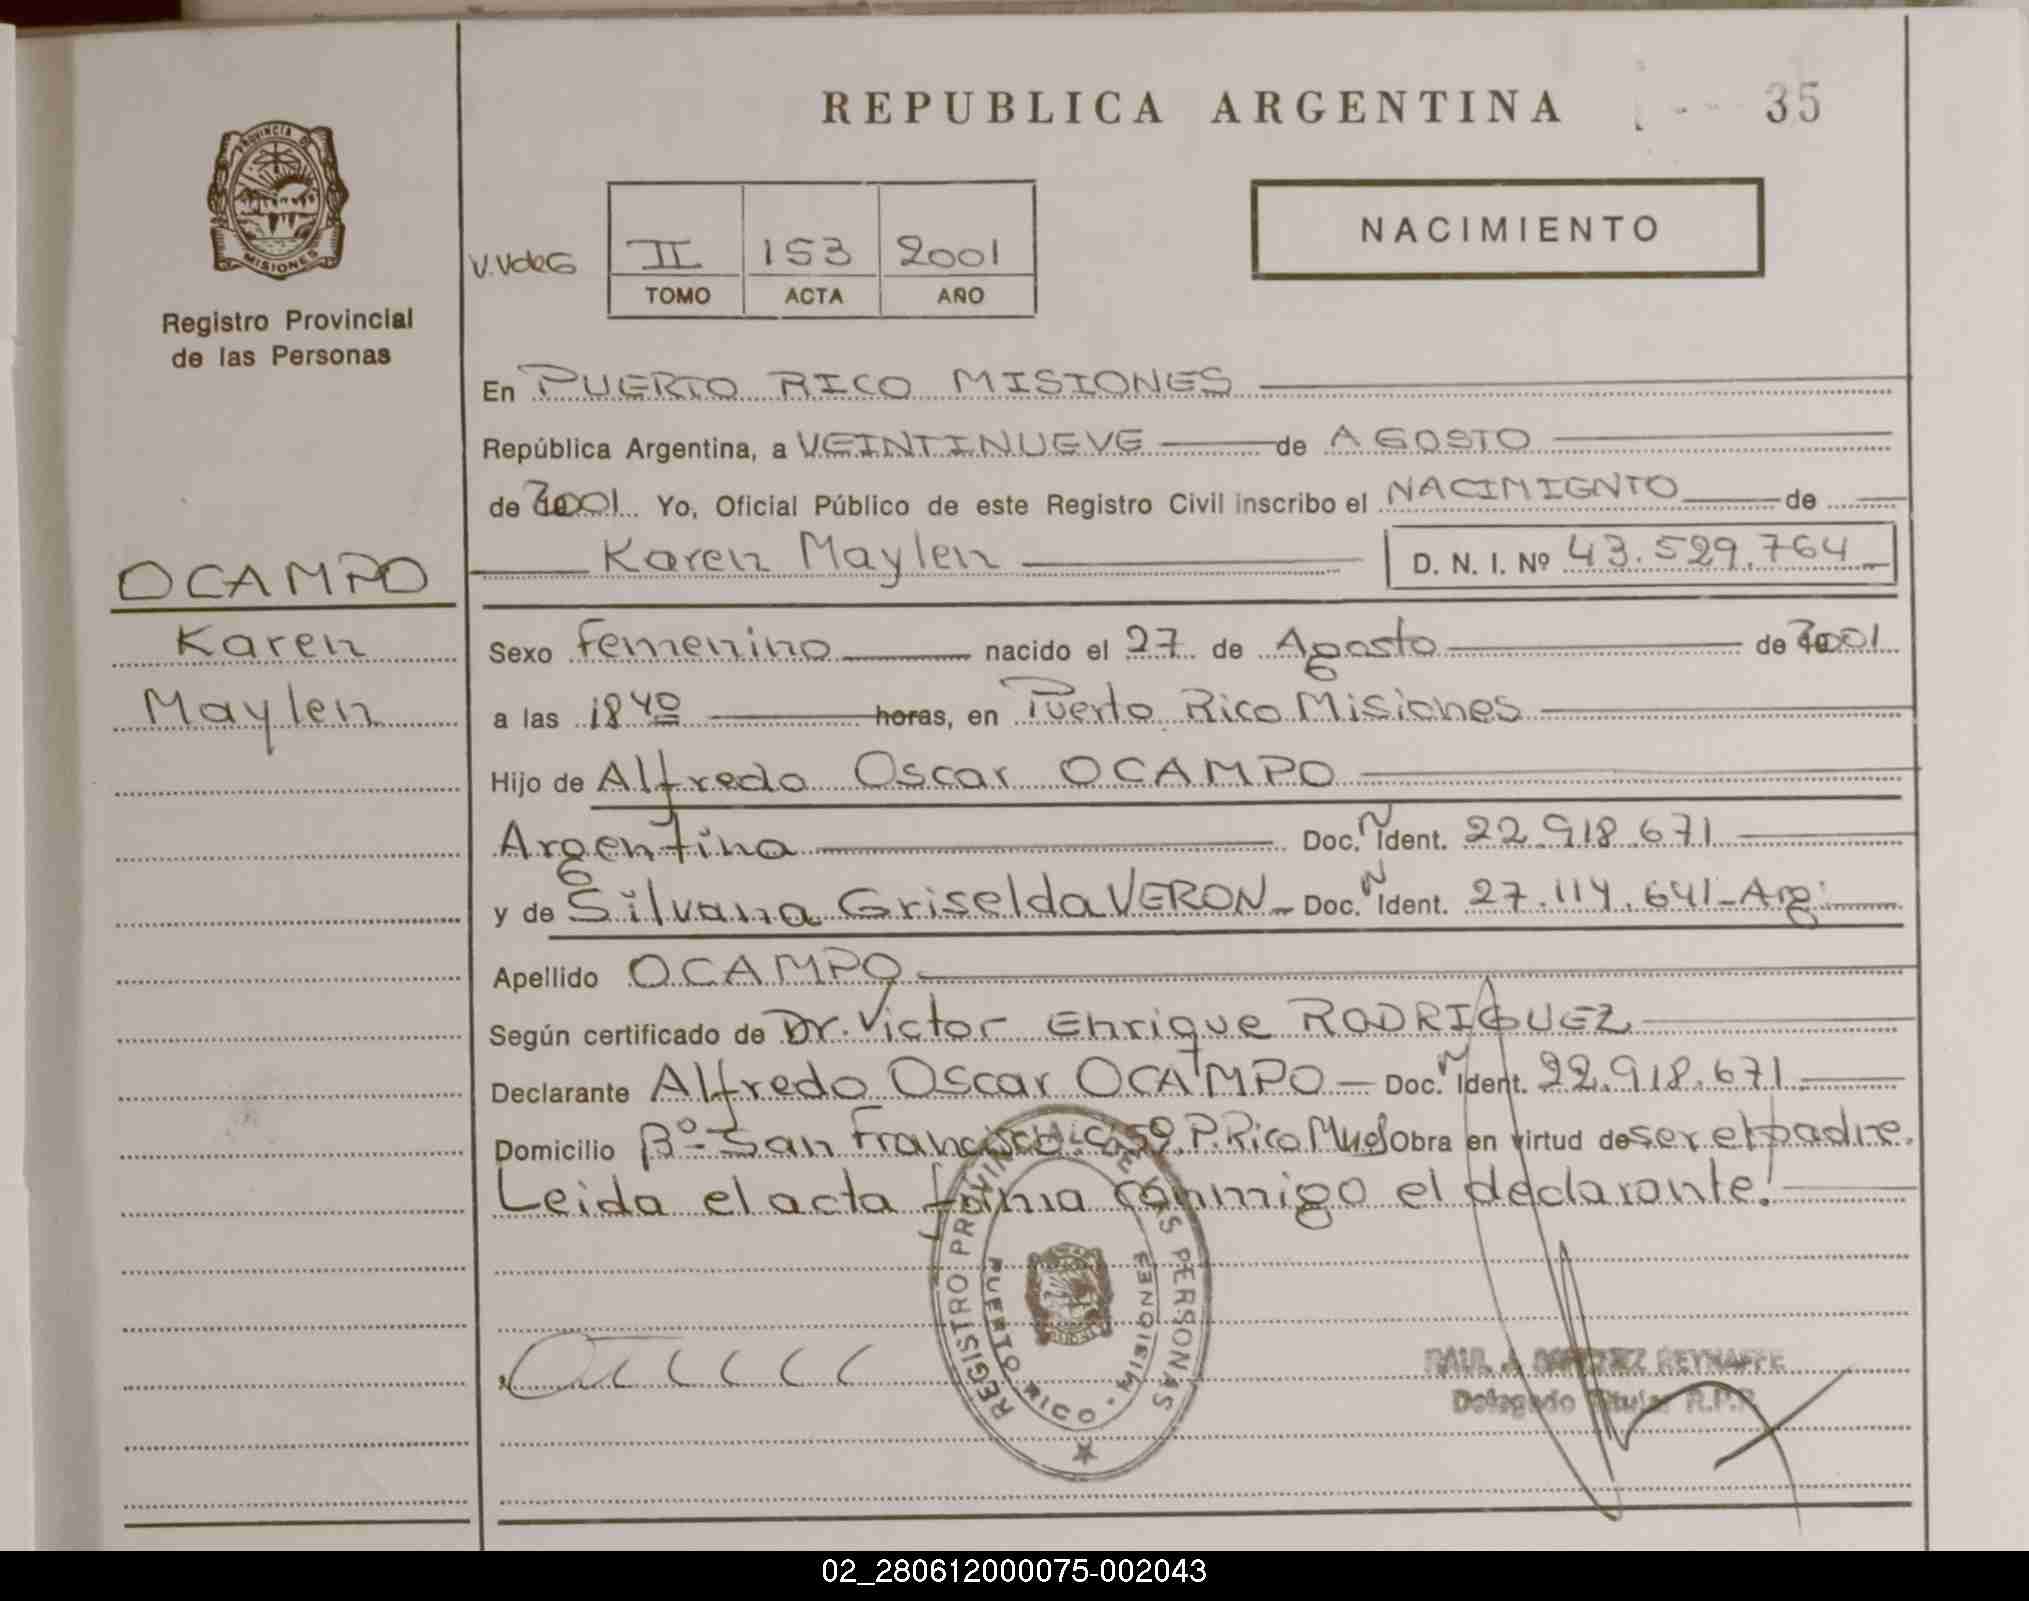 REPUBLICA ARGENTINA
35
PROVINCIA DE
MISIONES
Registro Provincial
de las Personas
V.VdeG
II 153 2001
TOMO ACTA AÑO
NACIMIENTO
En PUERTO RICO MISIONES
República Argentina, a VEINTINUEVE de AGOSTO
de 2001 Yo, Oficial Público de este Registro Civil inscribo el NACIMIENTO de
Karen Maylen D. N. I. Nº 43.529.764
OCAMPO
Karen
Maylen
Sexo Femenino nacido el 27 de Agosto de 2001
a las 18 40 horas, en Puerto Rico Misiones
Hijo de Alfredo Oscar OCAMPO
Argentina Doc. N Ident. 22.918.671
y de Silvana Griselda VERON Doc. N Ident. 27.114.641-Arg.
Apellido OCAMPO
Según certificado de Dr. Victor Enrique RODRIGUEZ
Declarante Alfredo Oscar OCAMPO Doc. N Ident. 22.918.671
Domicilio Bº San Francisco C 59 P. Rico Mnes Obra en virtud de ser el padre.
Leida el acta firma conmigo el declarante.
REGISTRO PROVINCIAL DE LAS PERSONAS
PUERTO RICO - MISIONES
RAUL J. REYNAFFE
Delegado Titular R.P.P.
02_280612000075-002043